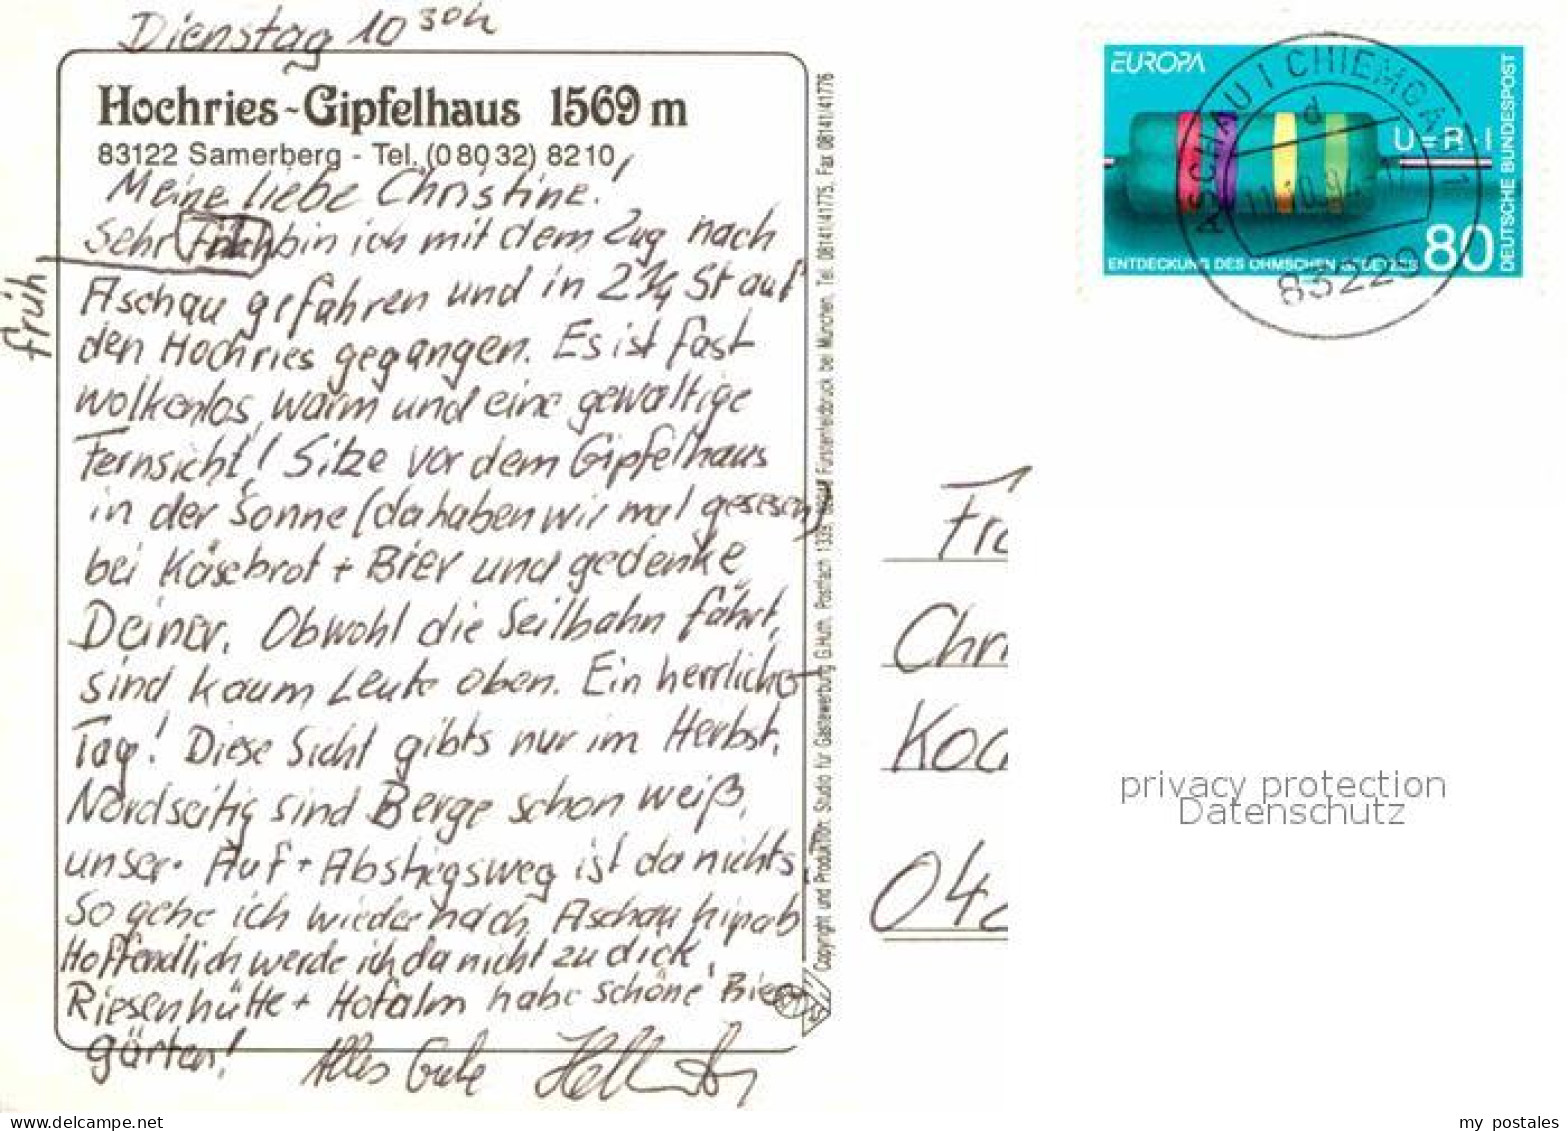 Dienstag 10 30h
Hochries-Gipfelhaus 1569 m
83122 Samerberg - Tel. (0 80 32) 82 10
Meine liebe Christine!
früh
Sehr bin ich mit dem Zug nach
Aschau gefahren und in 2 3/4 St auf
den Hochries gegangen. Es ist fast
wolkenlos, warm und eine gewaltige
Fernsicht! Sitze vor dem Gipfelhaus
in der Sonne (da haben wir mal gesesen)
bei Käsebrot + Bier und gedenke
Deiner. Obwohl die Seilbahn fährt,
sind kaum Leute oben. Ein herrlicher
Tag! Diese Sicht gibts nur im Herbst.
Nordseitig sind Berge schon weiß,
unser Auf + Abstiegsweg ist da nichts.
So gehe ich wieder nach Aschau hinab
Hoffendlich werde ich da nicht zu dick,
Riesenhütte + Hofalm habe schöne Bier
gärten!
Alles Gute
Copyright und Produktion: Studio für Gästewerbung G.Huth, Postfach 1339, Fürstenfeldbruck bei München, Tel. 08141/41775, Fax 08141/41776
EUROPA
U=R·I
ENTDECKUNG DES OHMSCHEN GESETZES
80
DEUTSCHE BUNDESPOST
ASCHAU I CHIEMGAU 1
d
83229
Fr
Chri
Koc
04
privacy protection
Datenschutz
delcampe.net
my_postales